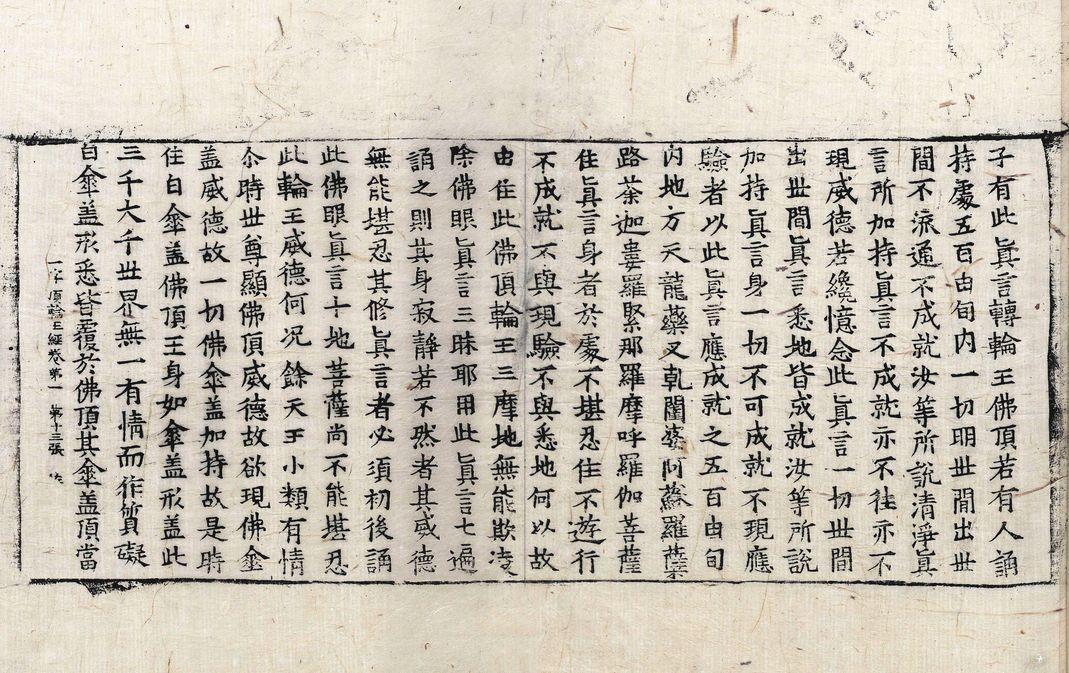 子有此眞言轉輪王佛頂若有人誦
持處五百由旬内一切明世間出世
間不流通不成就汝等所說清淨眞
言所加持眞言不成就亦不往亦不
現威德若纔憶念此眞言一切世間
出世間眞言悉地皆成就汝等所說
加持眞言身一切不可成就不現應
驗者以此眞言應成就之五百由旬
内地方天龍藥叉乹闥婆阿蘇羅蘖
路茶迦婁羅緊那羅摩呼羅伽菩薩
住眞言身者於處不堪忍住不遊行
不成就不與現驗不與悉地何以故
由住此佛頂輪王三摩地無能欺淩
除佛眼眞言三昧耶用此眞言七遍
誦之則其身寂靜若不然者其威德
無能堪忍其修眞言者必須初後誦
此佛眼眞言十地菩薩尚不能堪忍
此輪王威德何况餘天王小類有情
尒時世尊顯佛頂威德故欲現佛傘
盖威德故一切佛傘盖加持故是時
住白傘盖佛頂王身如傘盖形盖此
三千大千世界無一有情而作質礙
白傘盖形悉皆覆於佛頂其傘盖頂當
一字頂輪王經卷第一 第十三張